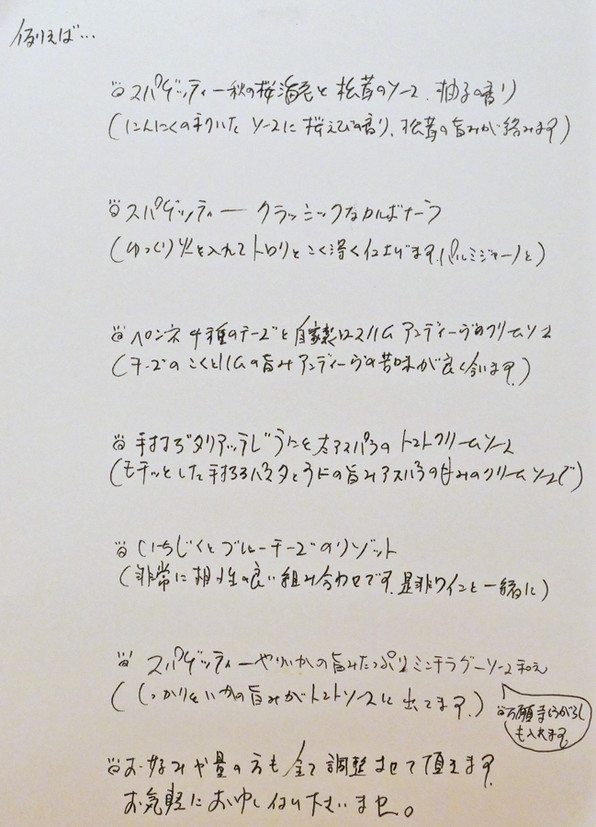 例えば…
スパゲッティー秋の桜海老と松茸のソース、柚子の香り
(にんにくの利いたソースに桜えびの香り、松茸の旨みが絡みます)
スパゲッティー クラッシックなカルボナーラ
(ゆっくり火を入れてトロリとこく深く仕上げます。パルミジャーノと)
ペンネ 4種のチーズと自家製ロースハム アンディーヴのクリームソース
(チーズのこくとハムの旨みアンディーヴの苦味が良く合います。)
手打ちタリアッテレ うにと太アスパラのトマトクリームソース
(モチッとした手打ちパスタとうにの旨みアスパラの甘みのクリームソースで)
いちじくとブルーチーズのリゾット
(非常に相性の良い組み合わせです。是非ワインと一緒に)
スパゲッティーやりいかの旨みたっぷりミンチラグーソース和え
(しっかりといかの旨みがトマトソースに出てます。)
万願寺とうがらし
も入れます。
お好みや量の方も全て調整させて頂きます。
お気軽にお申し付け下さいませ。